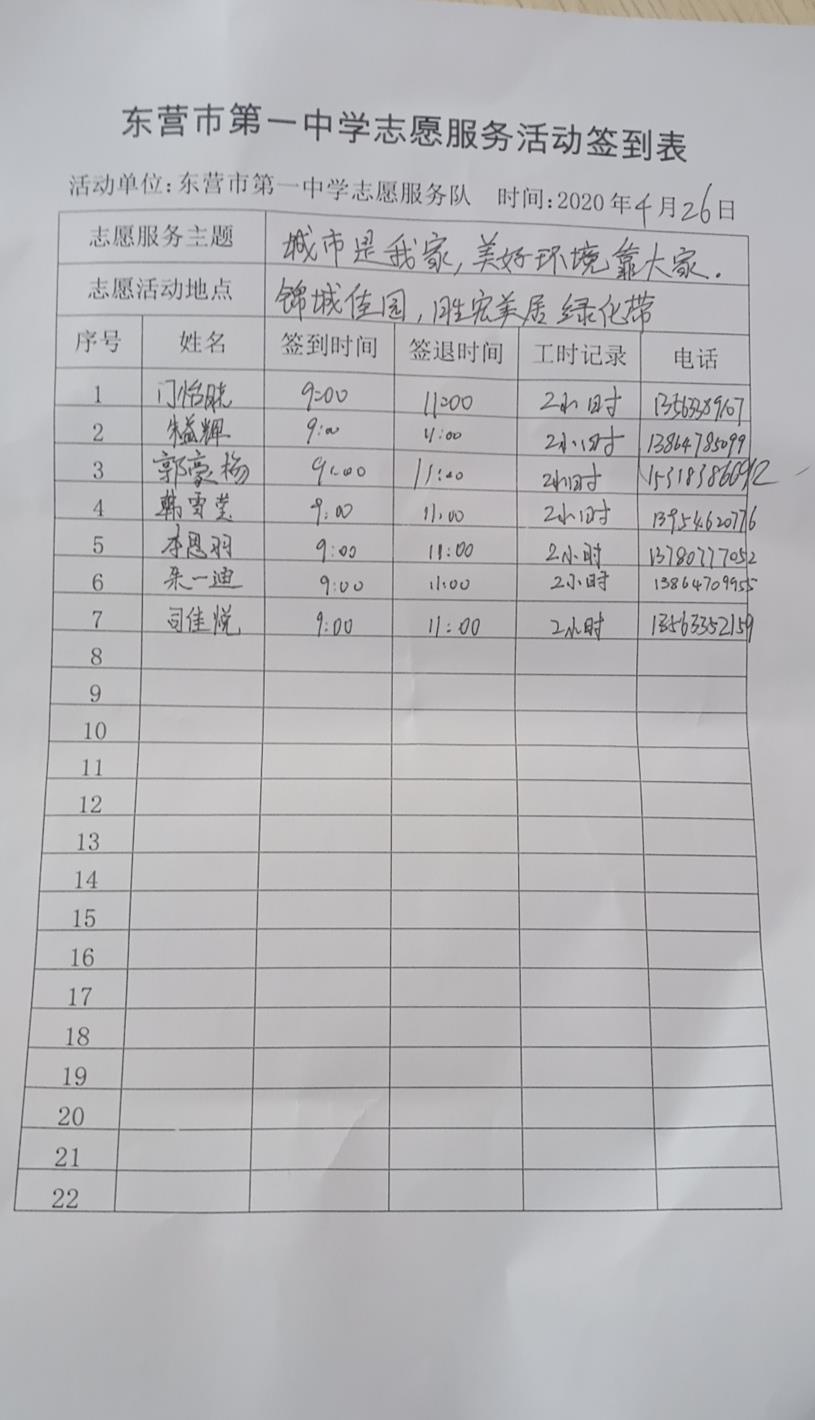 东营市第一中学志愿服务活动签到表
活动单位:东营市第一中学志愿服务队 时间:2020年4月26日
志愿服务主题 城市是我家,美好环境靠大家.
志愿活动地点 锦城佳园,胜宏美居 绿化带
序号 姓名 签到时间 签退时间 工时记录 电话
1 门怡晓 9:00 11:00 2小时
2 朱益辉 9:00 11:00 2小时 13864785099
3 郭豪杨 9:00 11:00 2小时 15318386092
4 韩雪莹 9:00 11:00 2小时 13954620776
5 李恩羽 9:00 11:00 2小时 13780777052
6 朱一迪 9:00 11:00 2小时 13864709955
7 司佳悦 9:00 11:00 2小时 13563352159
8
9
10
11
12
13
14
15
16
17
18
19
20
21
22